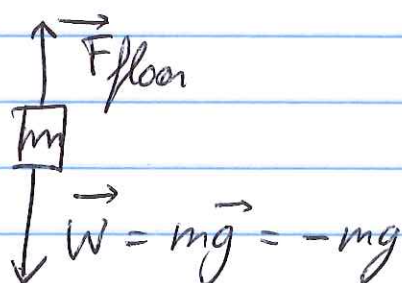 F⃗floor
m
W⃗ = mg⃗ = -mg